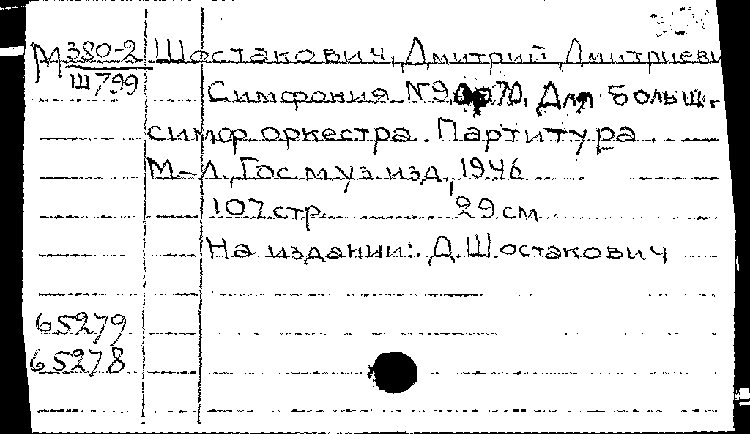 М 380-2 Шостакович, Дмитрий Дмитриеви
Ш799
Симфония №9, 70. Для больш.
симф оркестра. Партитура
М-Л., Гос муз изд, 1946
107 стр. 29 см
На издании: Д. Шостакович
65279
65278